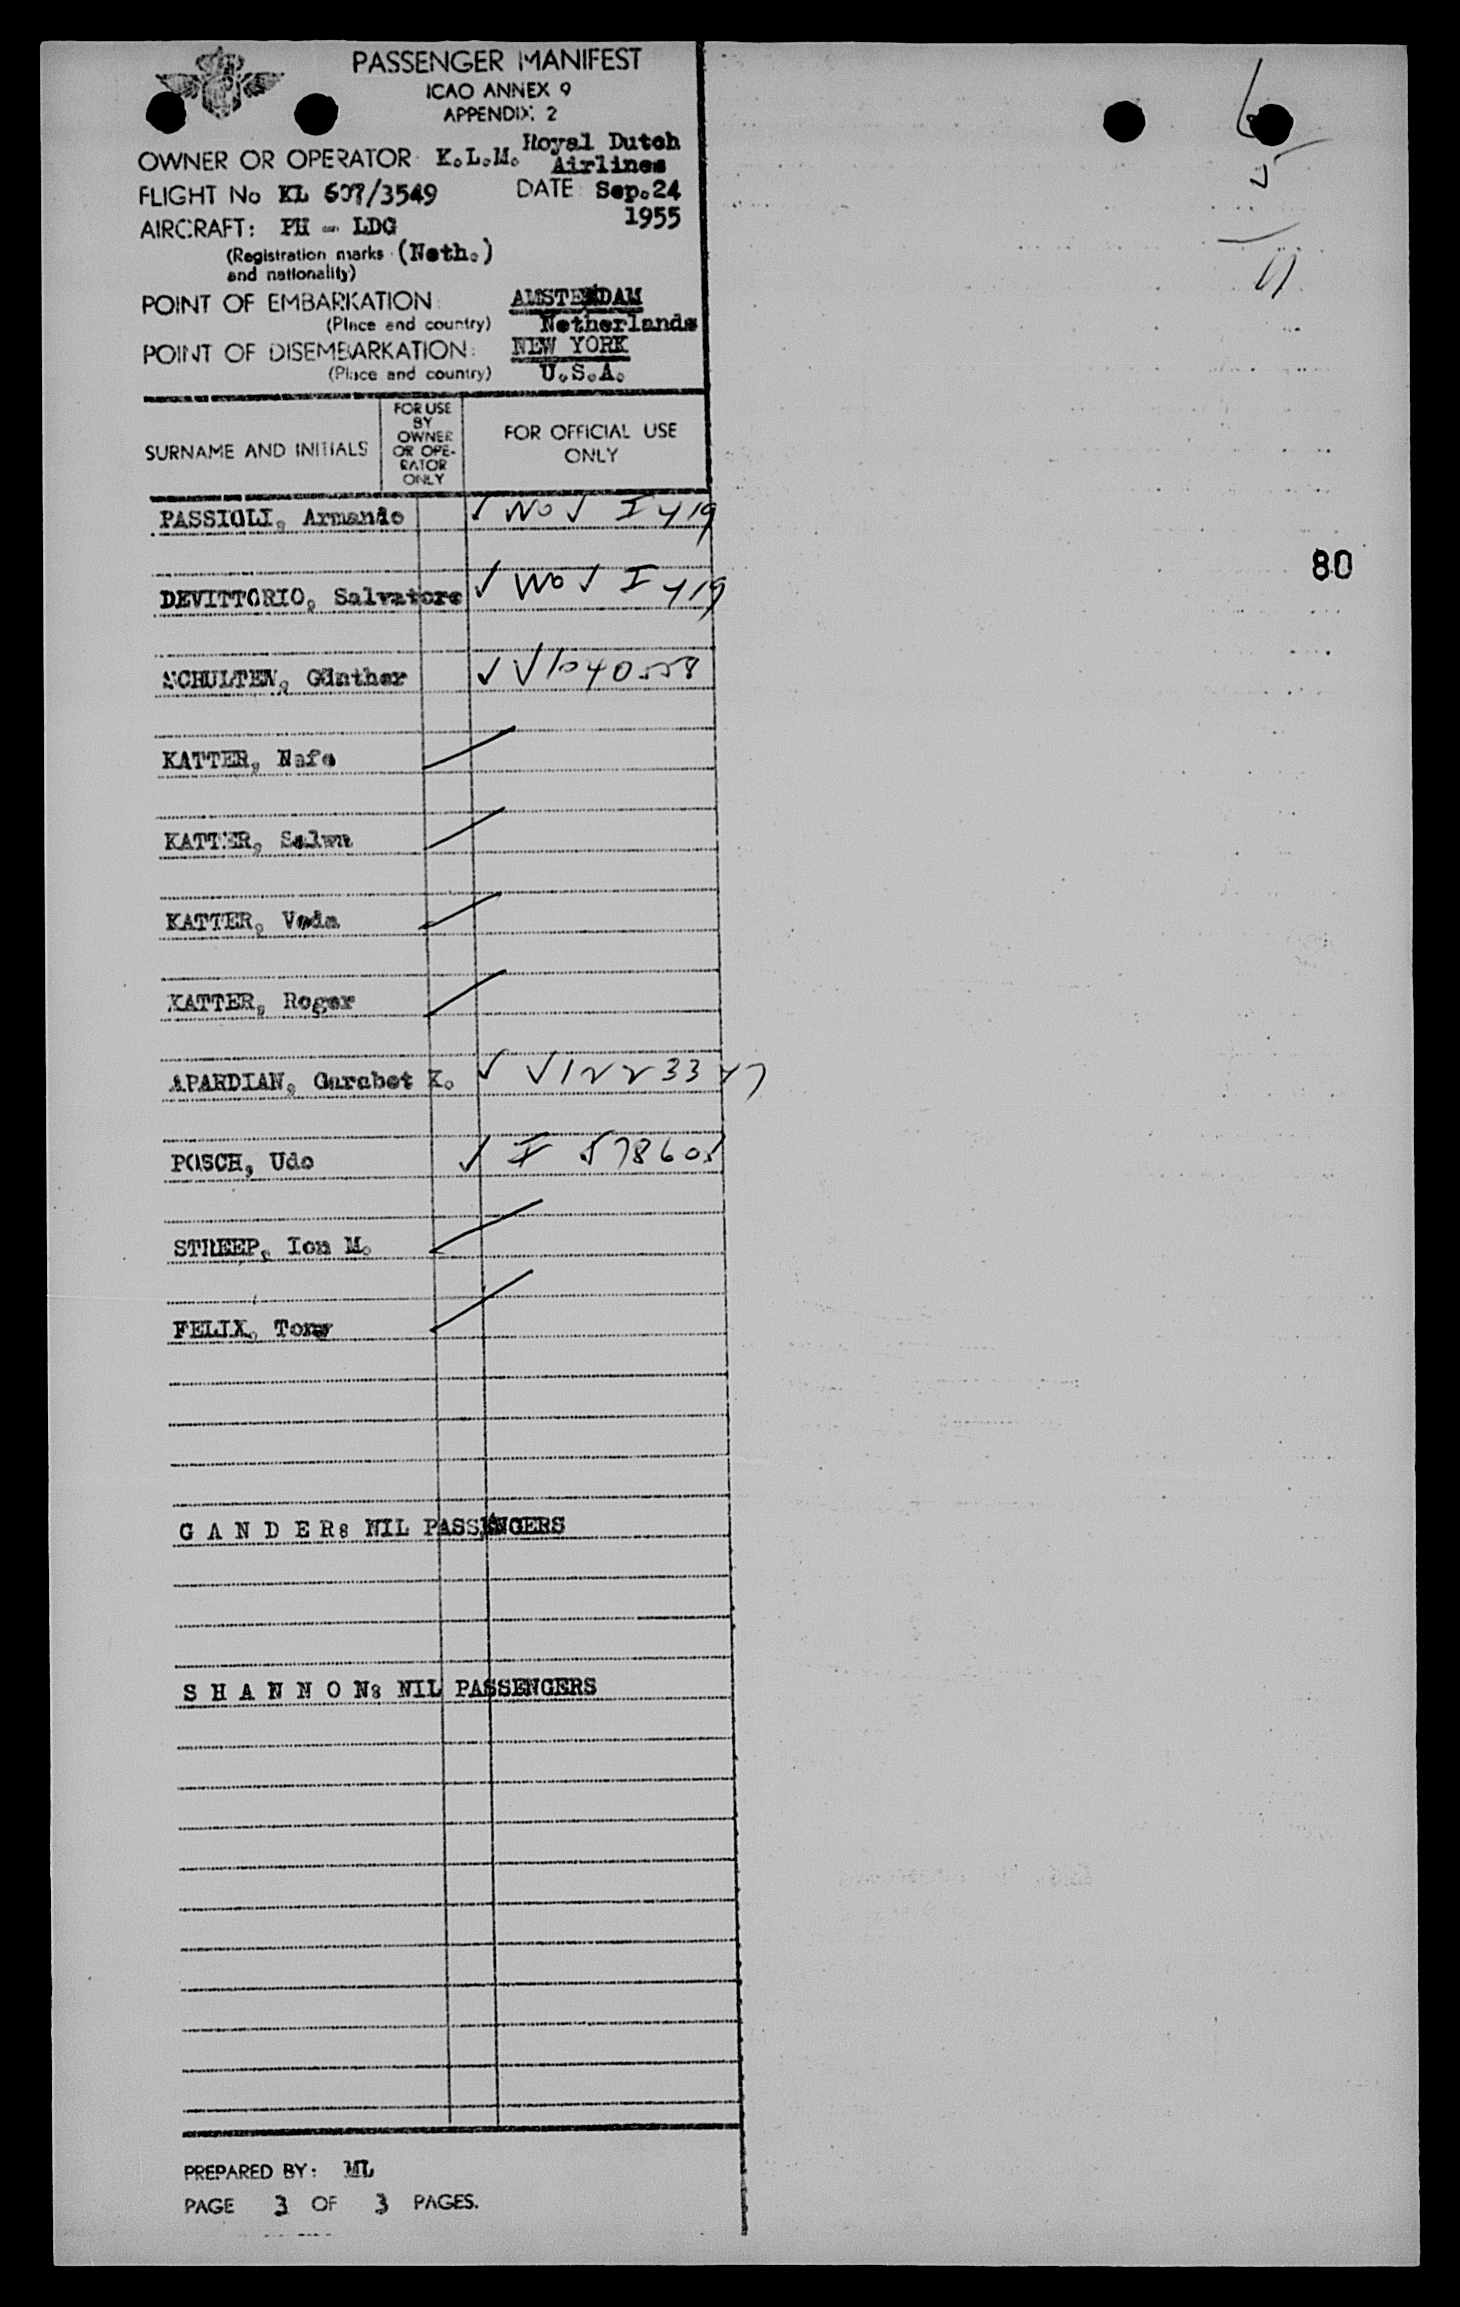 PASSENGER MANIFEST
ICAO ANNEX 9
APPENDIX 2
OWNER OR OPERATOR: K.L.M. Royal Dutch Airlines
FLIGHT No KL 607/3549 DATE: Sep.24 1955
AIRCRAFT: PH - LDG
(Registration marks and nationality) (Neth.)
POINT OF EMBARKATION: AMSTERDAM
(Place and country) Netherlands
POINT OF DISEMBARKATION: NEW YORK
(Place and country) U.S.A.
SURNAME AND INITIALS
FOR USE BY OWNER OR OPE-RATOR ONLY
FOR OFFICIAL USE ONLY
PASSIGLI, Armando ✓ No ✓ I 419
DEVITTORIO, Salvatore ✓ No ✓ I 419
SCHULTEN, Günther ✓ V1040558
KATTER, Nafe
KATTER, Salwn
KATTER, Veda
KATTER, Roger
APARDIAN, Garabet K. ✓ V1223347
POSCH, Udo ✓ I 578605
STREEP, Ion M.
FELIX, Tony
80
G A N D E R: NIL PASSENGERS
S H A N N O N: NIL PASSENGERS
PREPARED BY: ML
PAGE 3 OF 3 PAGES.